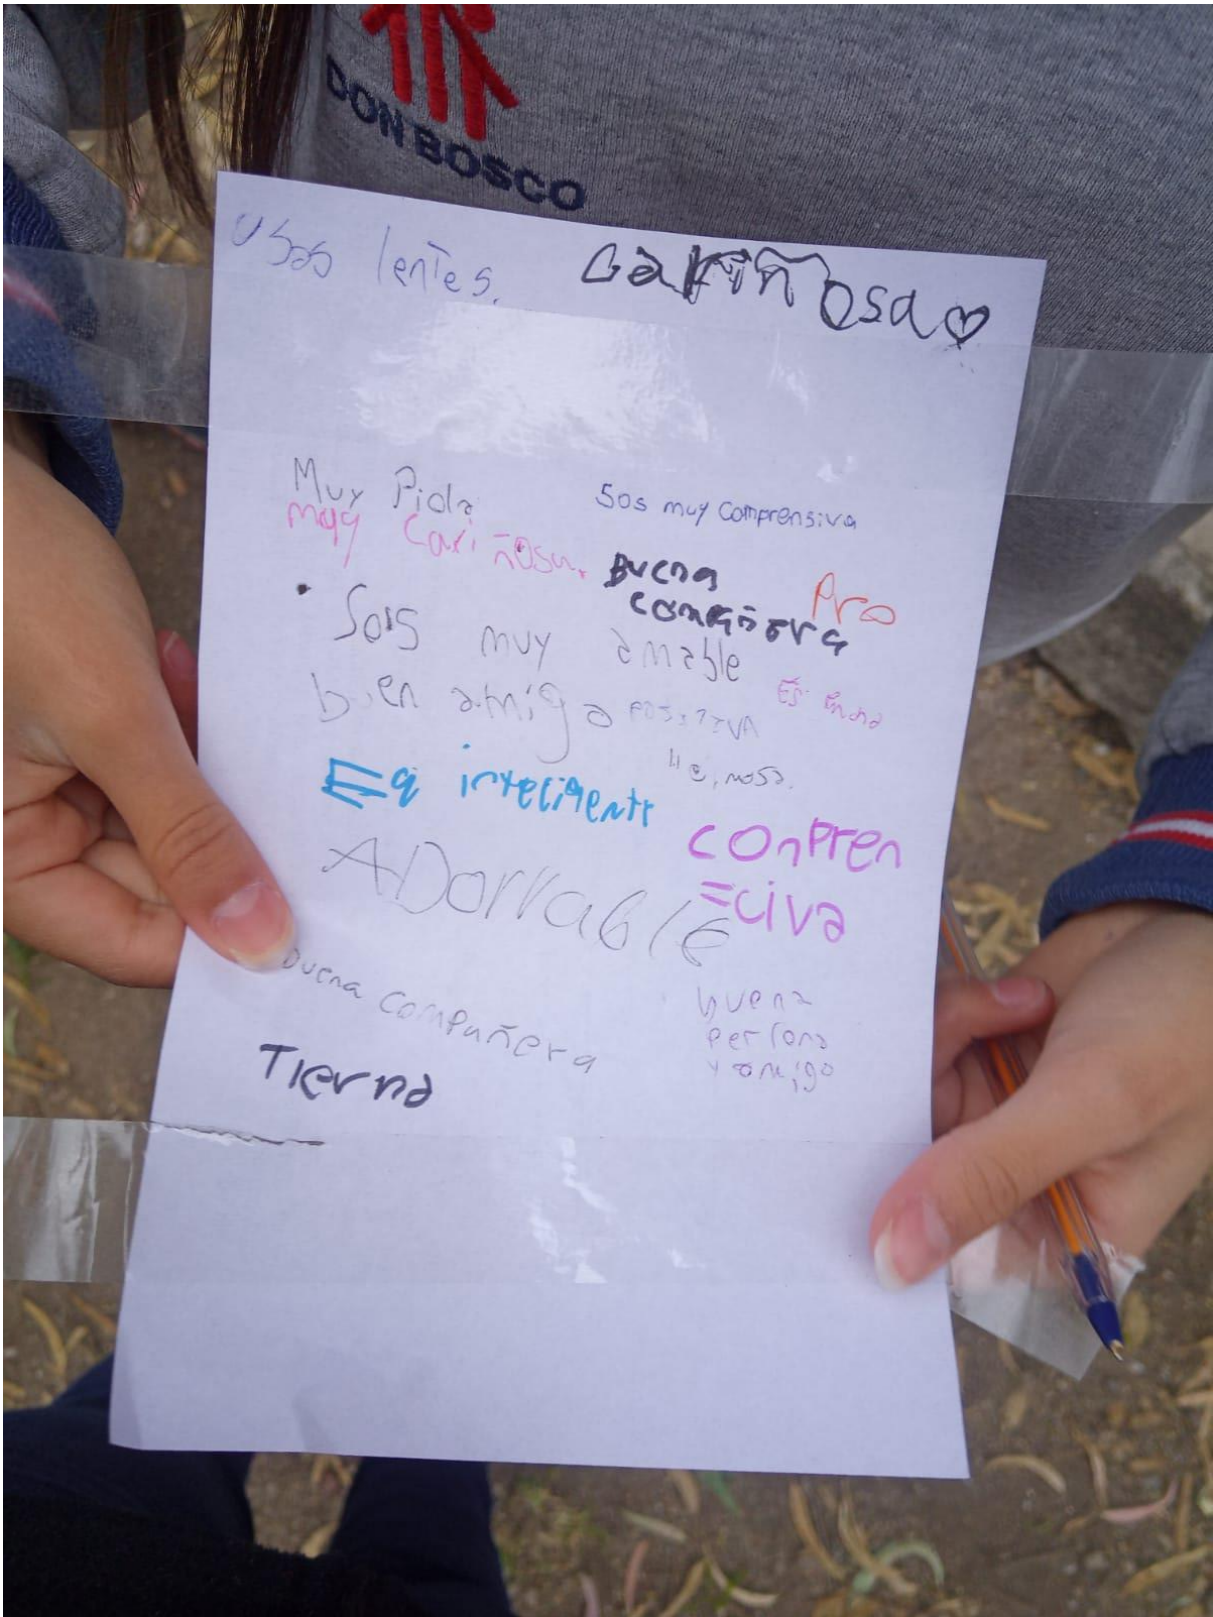 DON BOSCO
Usas lentes.
Cariñosa
Muy Piola
Sos muy comprensiva
muy Cariñosa.
Buena
compañera
Pro
• Sois muy amable
buen amiga
POSITIVA
Es
Es inteligente
conpren
=civa
ADorrable
buena compañera
buena
persona
y amigo
Tierna